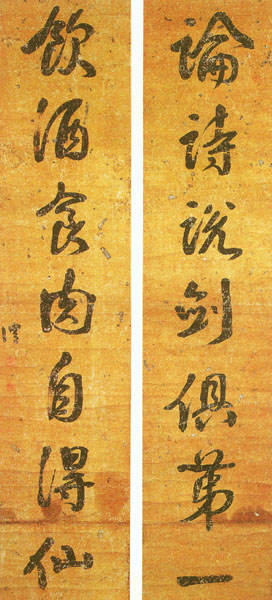 論詩說劍俱第一
飲酒食肉自得仙